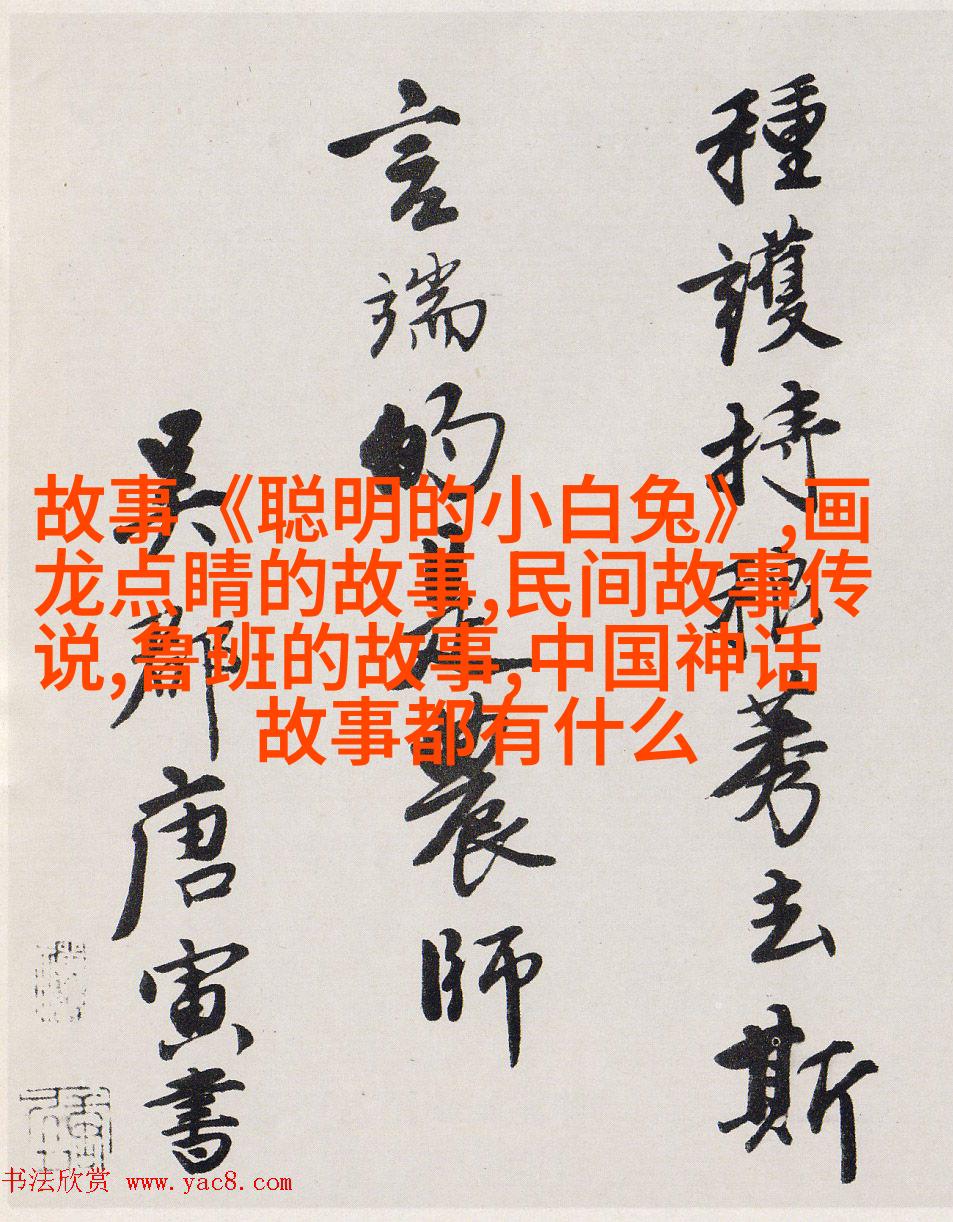 種護持稂莠去斯
言端的是農師
吳郡唐寅書
故事《聪明的小白兔》,画
龙点睛的故事,民间故事传
说,鲁班的故事,中国神话
故事都有什么
书法欣赏 www.yac8.com